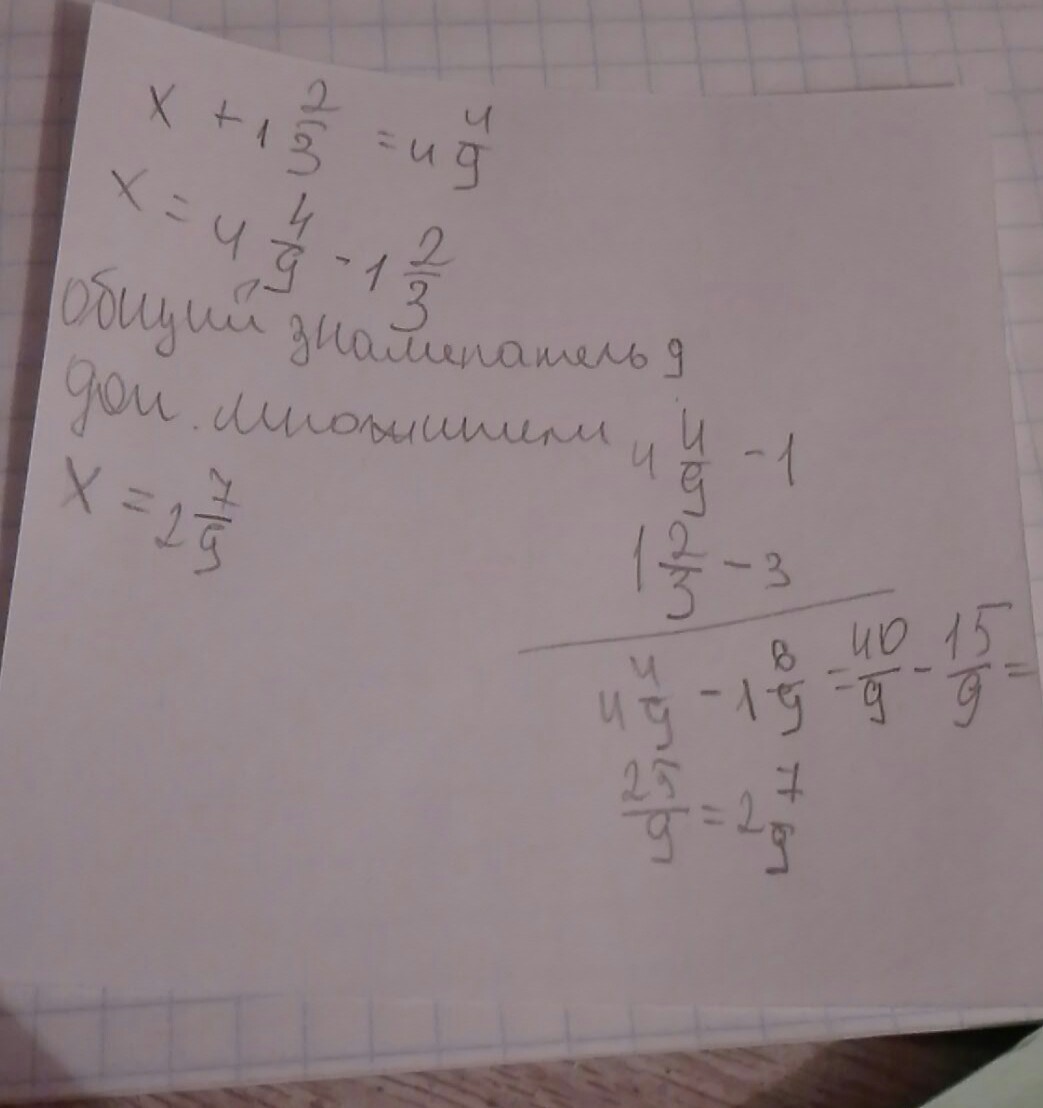 x + 1 2/3 = 4 4/9
x = 4 4/9 - 1 2/3
общий знаменатель 9
доп. множители
4 4/9 - 1
x = 2 7/9
1 2/3 - 3
4 4/9 - 1 8/9 = 40/9 - 15/9 =
25/9 = 2 7/9